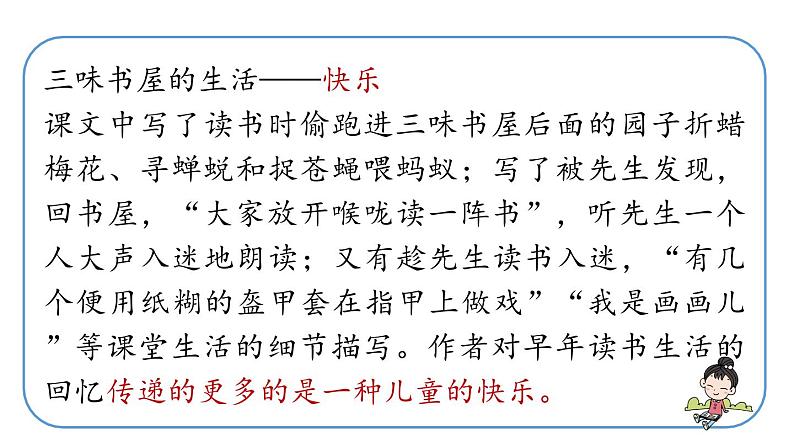 三味书屋的生活——快乐
课文中写了读书时偷跑进三味书屋后面的园子折蜡
梅花、寻蝉蜕和捉苍蝇喂蚂蚁；写了被先生发现，
回书屋，“大家放开喉咙读一阵书”，听先生一个
人大声入迷地朗读；又有趁先生读书入迷，“有几
个便用纸糊的盔甲套在指甲上做戏”“我是画画儿
”等课堂生活的细节描写。作者对早年读书生活的
回忆传递的更多的是一种儿童的快乐。